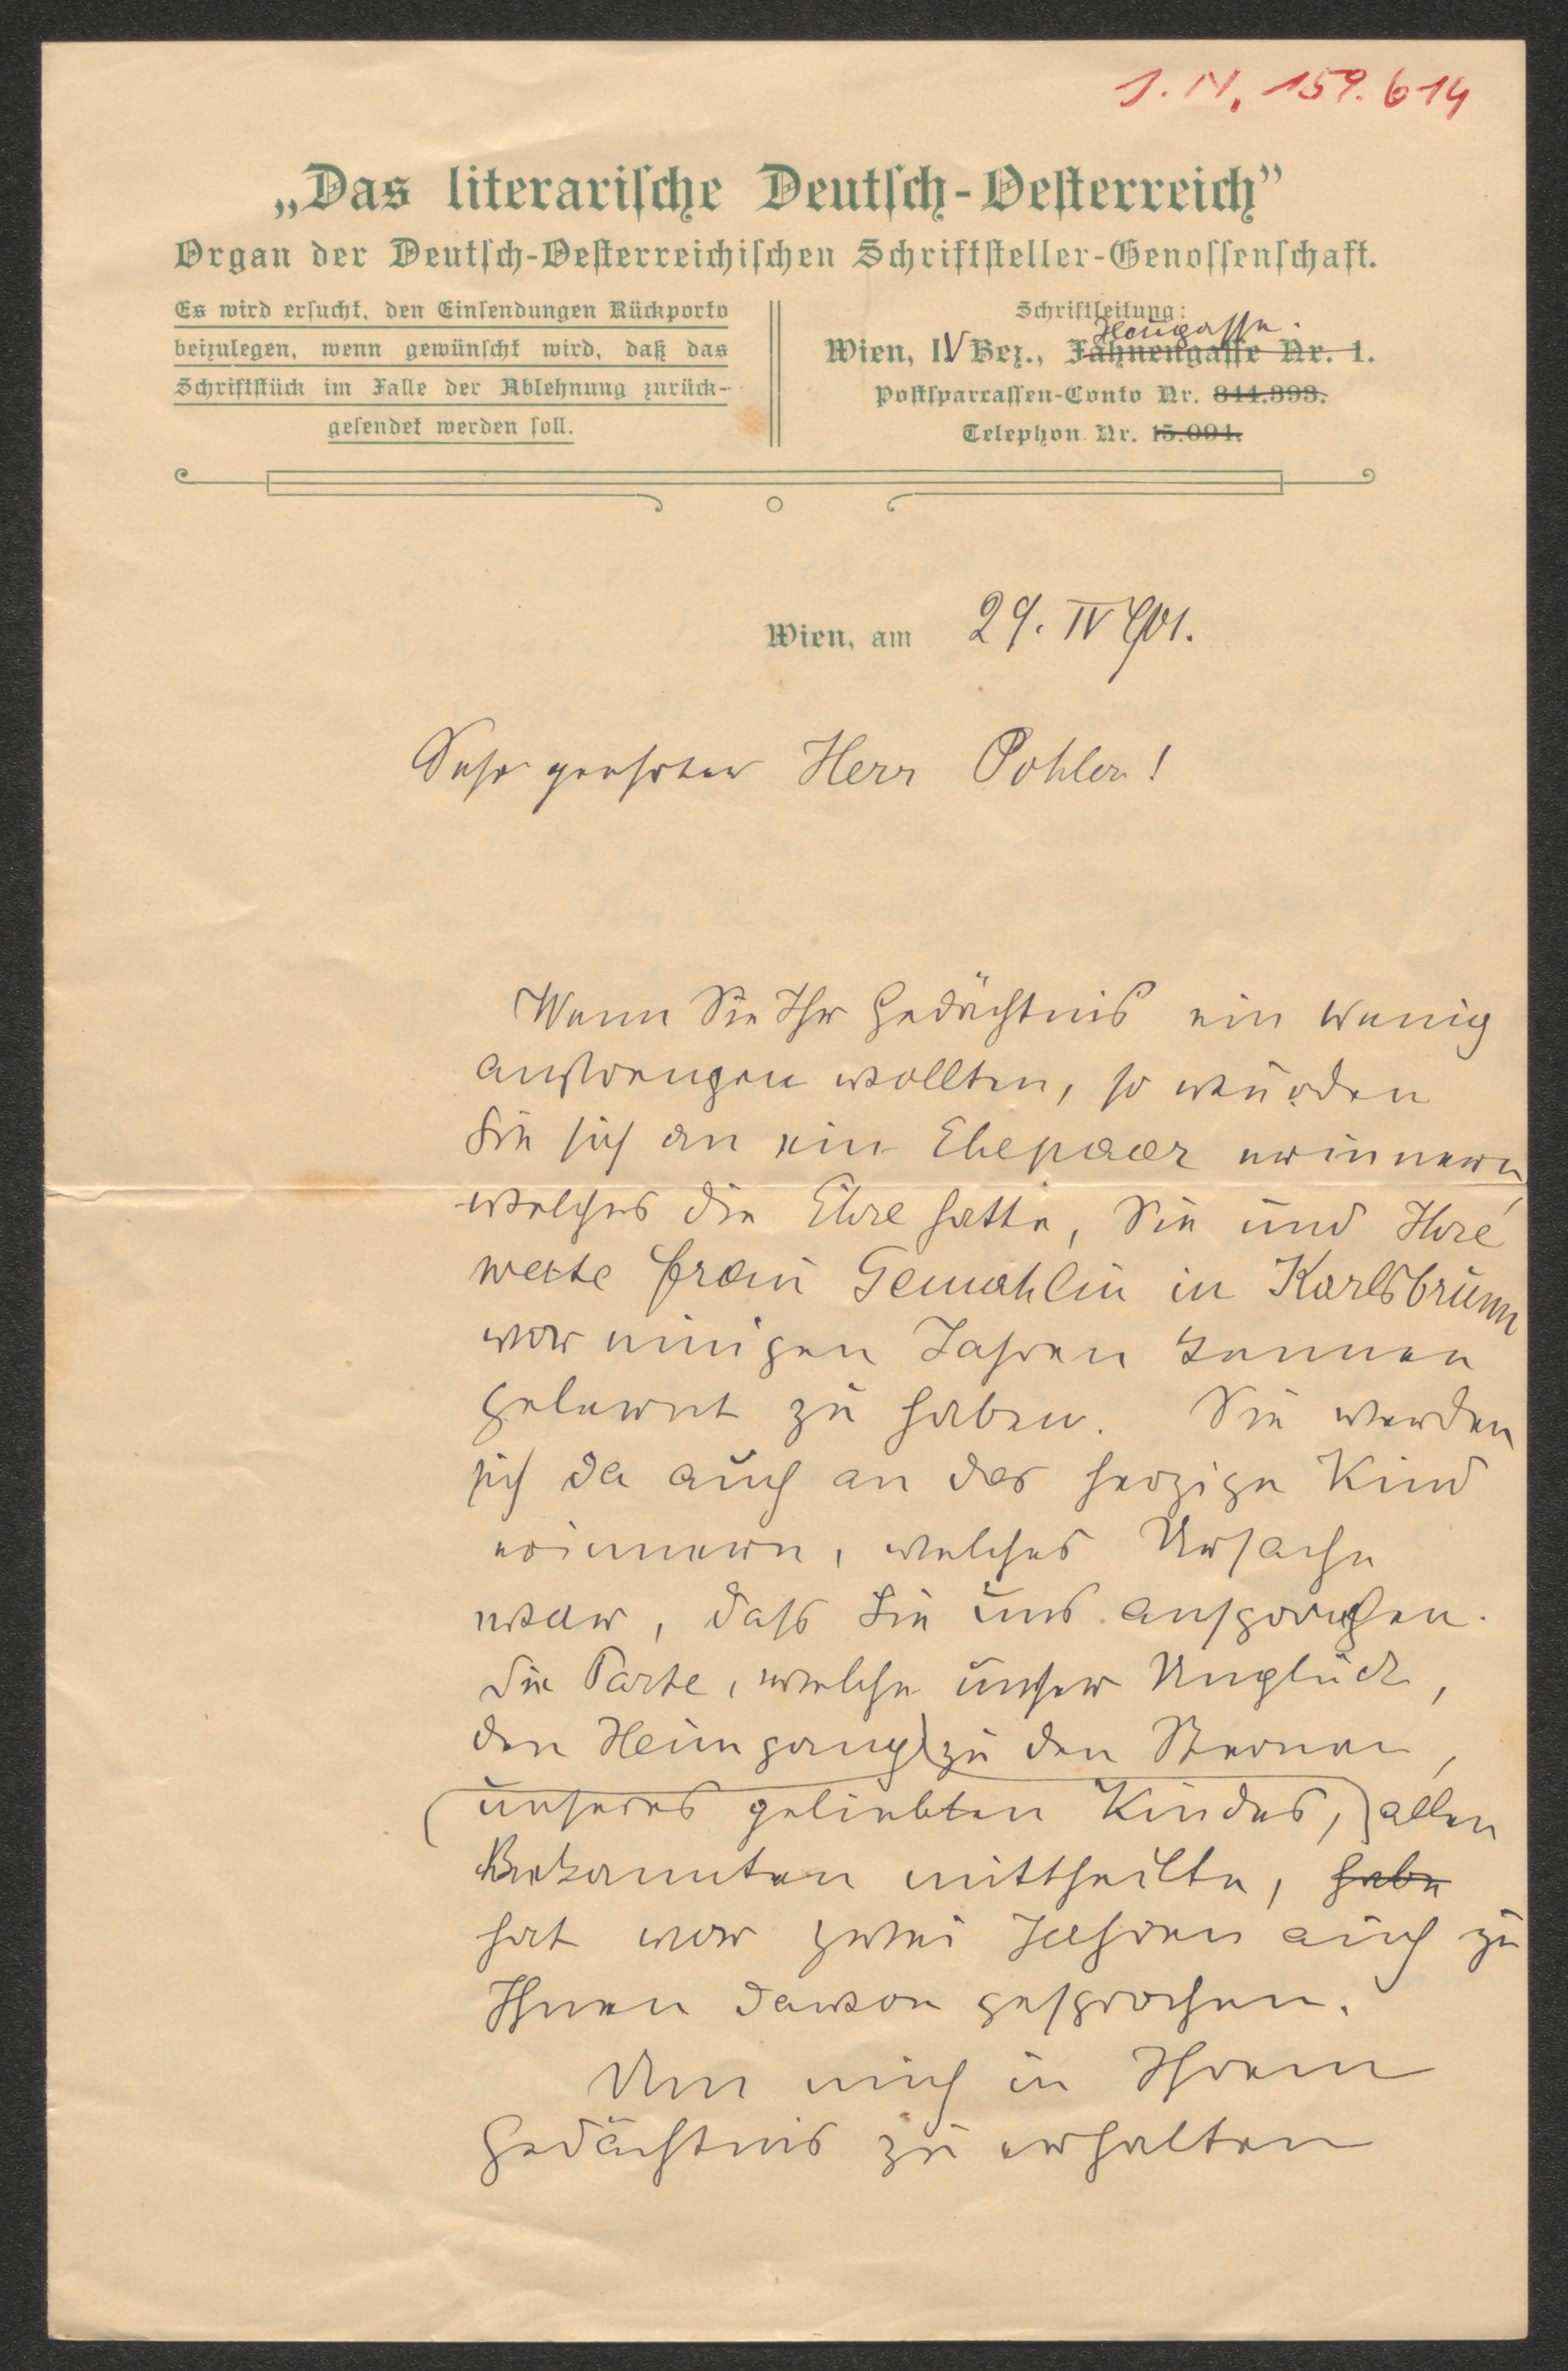 J. N. 159.614
„Das literariſche Deutſch-Oeſterreich”
Organ der Deutſch-Oeſterreichiſchen Schriftſteller-Genoſſenſchaft.
Es wird erſucht, den Einſendungen Rückporto
beizulegen, wenn gewünſcht wird, daß das
Schriftſtück im Falle der Ablehnung zurück-
geſendet werden ſoll.
Schriftleitung:
Heugasse.
Wien, IV Bez., Fahnengaſſe Nr. 1.
Poſtſparcaſſen-Conto Nr. 844.393.
Telephon Nr. 15.094.
Wien, am 29. IV 901.
Sehr geehrter Herr Pohler!
Wenn Sie Ihr Gedächtnis ein wenig
anstrengen wollten, so würden
Sie sich an ein Ehepaar erinnern,
welches die Ehre hatte, Sie und Ihre
werte Frau Gemahlin in Karlsbrunn
vor einigen Jahren kennen
gelernt zu haben. Sie werden
sich da auch an das herzige Kind
erinnern, welches Ursache
war, dass Sie uns ansprachen.
Die Parte, welche unser Unglück,
den Heimgang zu den Sternen,
unseres geliebten Kindes, allen
Bekannten mittheilte, habe
hat vor zwei Jahren auch zu
Ihnen davon gesprochen.
Um mich in Ihrem
Gedächtnis zu erhalten